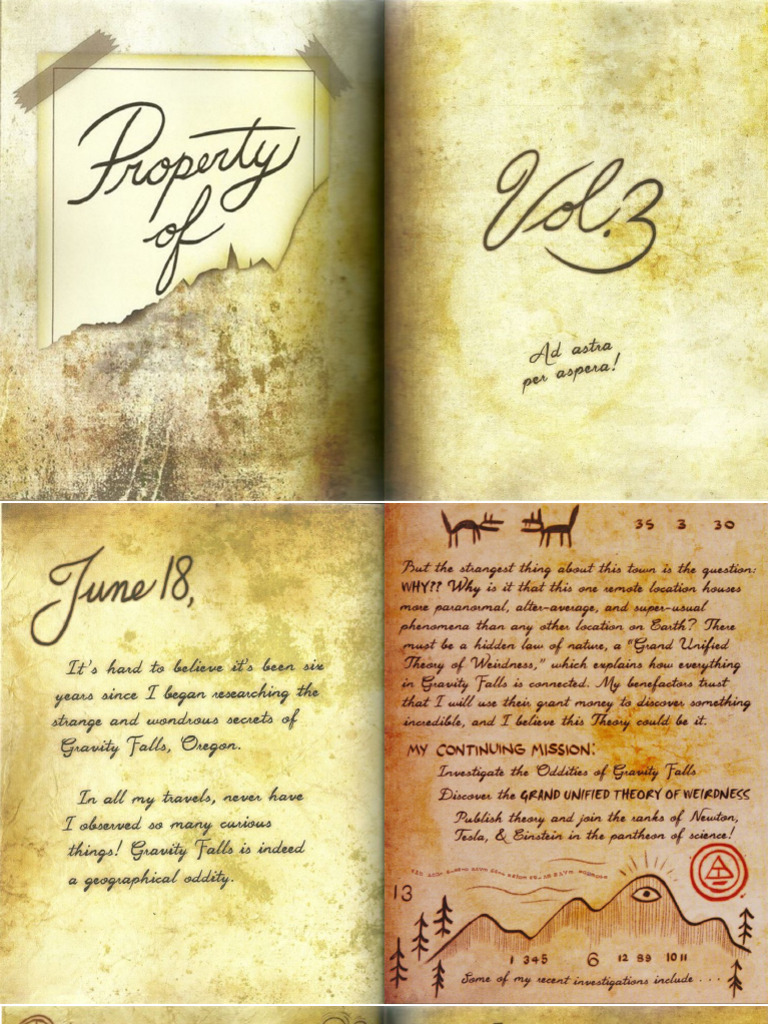 Property
of
Vol. 3
Ad astra
per aspera!
June 18,
It's hard to believe it's been six
years since I began researching the
strange and wondrous secrets of
Gravity Falls, Oregon.
In all my travels, never have
I observed so many curious
things! Gravity Falls is indeed
a geographical oddity.
35 3 30
But the strangest thing about this town is the question:
WHY?? Why is it that this one remote location houses
more paranormal, alter-average, and super-usual
phenomena than any other location on Earth? There
must be a hidden law of nature, a "Grand Unified
Theory of Weirdness," which explains how everything
in Gravity Falls is connected. My benefactors trust
that I will use their grant money to discover something
incredible, and I believe this Theory could be it.
MY CONTINUING MISSION:
Investigate the Oddities of Gravity Falls
Discover the GRAND UNIFIED THEORY OF WEIRDNESS
Publish theory and join the ranks of Newton,
Tesla, & Einstein in the pantheon of science!
13
1 345 6 12 99 10 11
Some of my recent investigations include . . .